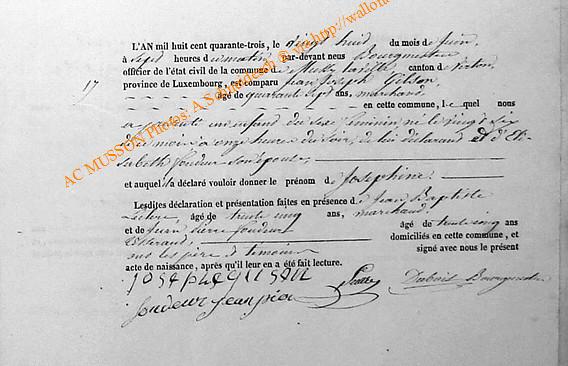 L'AN mil huit cent quarante-trois, le vingt huit du mois de juin,
à sept heures du matin par-devant nous Bourgmestre
officier de l'état civil de la commune de Mussy la ville canton de Virton
17 province de Luxembourg, est comparu jean joseph Gilson
âgé de quarante sept ans, marchand
en cette commune, le quel nous
a présenté un enfant du sexe féminin né le vingt six
de ce mois à onze heures du soir, de lui déclarant et d'Eli-
sabeth foudeur son épouse,
et auquel il a déclaré vouloir donner le prénom de Joséphine
Lesdites déclaration et présentation faites en présence de jean Baptiste
âgé de trente cinq ans, marchand
et de jean pierre foudeur âgé de trente cinq ans
domiciliés en cette commune, et
les père et témoins signé avec nous le présent
acte de naissance, après qu'il leur en a été fait lecture.
foudeur jean pier Bourgmestre
AC MUSSON Photos: A Schmidt &
via http://wallonia